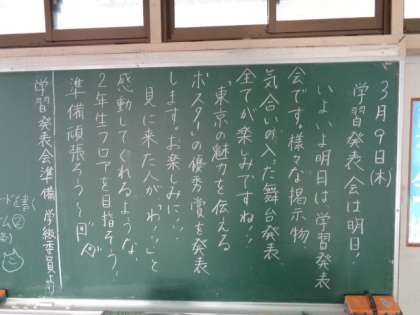 3月9日(木)
学習発表会は明日!
いよいよ明日は学習発表
会です。様々な掲示物、
気合いの入った舞台発表、
全てが楽しみですね!!
"東京の魅力を伝える
ポスター"の優秀賞を発表
します。お楽しみに!!
見に来た人が、「わ!!」と
感動してくれるような、
2年生フロアを目指そう!
準備頑張ろう〜
学習発表会準備 学級委員より